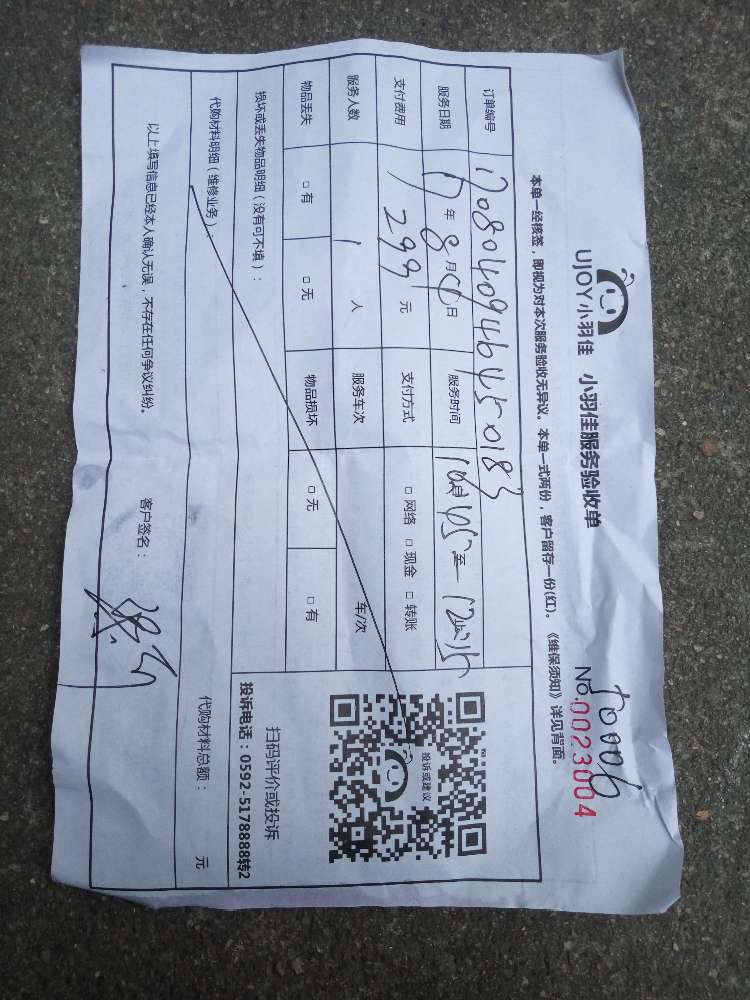 UJOY小羽佳 小羽佳服务验收单
10006
No.0023004
本单一经核签，即视为对本次服务验收无异议。本单一式两份，客户留存一份(红)。《维保须知》详见背面。
订单编号
服务日期 17年8月6日 服务时间 至
支付费用 299元 支付方式 □网络 □现金 □转账
服务人数 1 人 服务车次 车/次
物品丢失 □有 □无 物品损坏 □无 □有
损坏或丢失物品明细（没有可不填）：
投诉或建议
扫码评价或投诉
投诉电话：0592-5178888转2
代购材料明细（维修业务）： 代购材料总额： 元
以上填写信息已经本人确认无误，不存在任何争议纠纷。 客户签名：